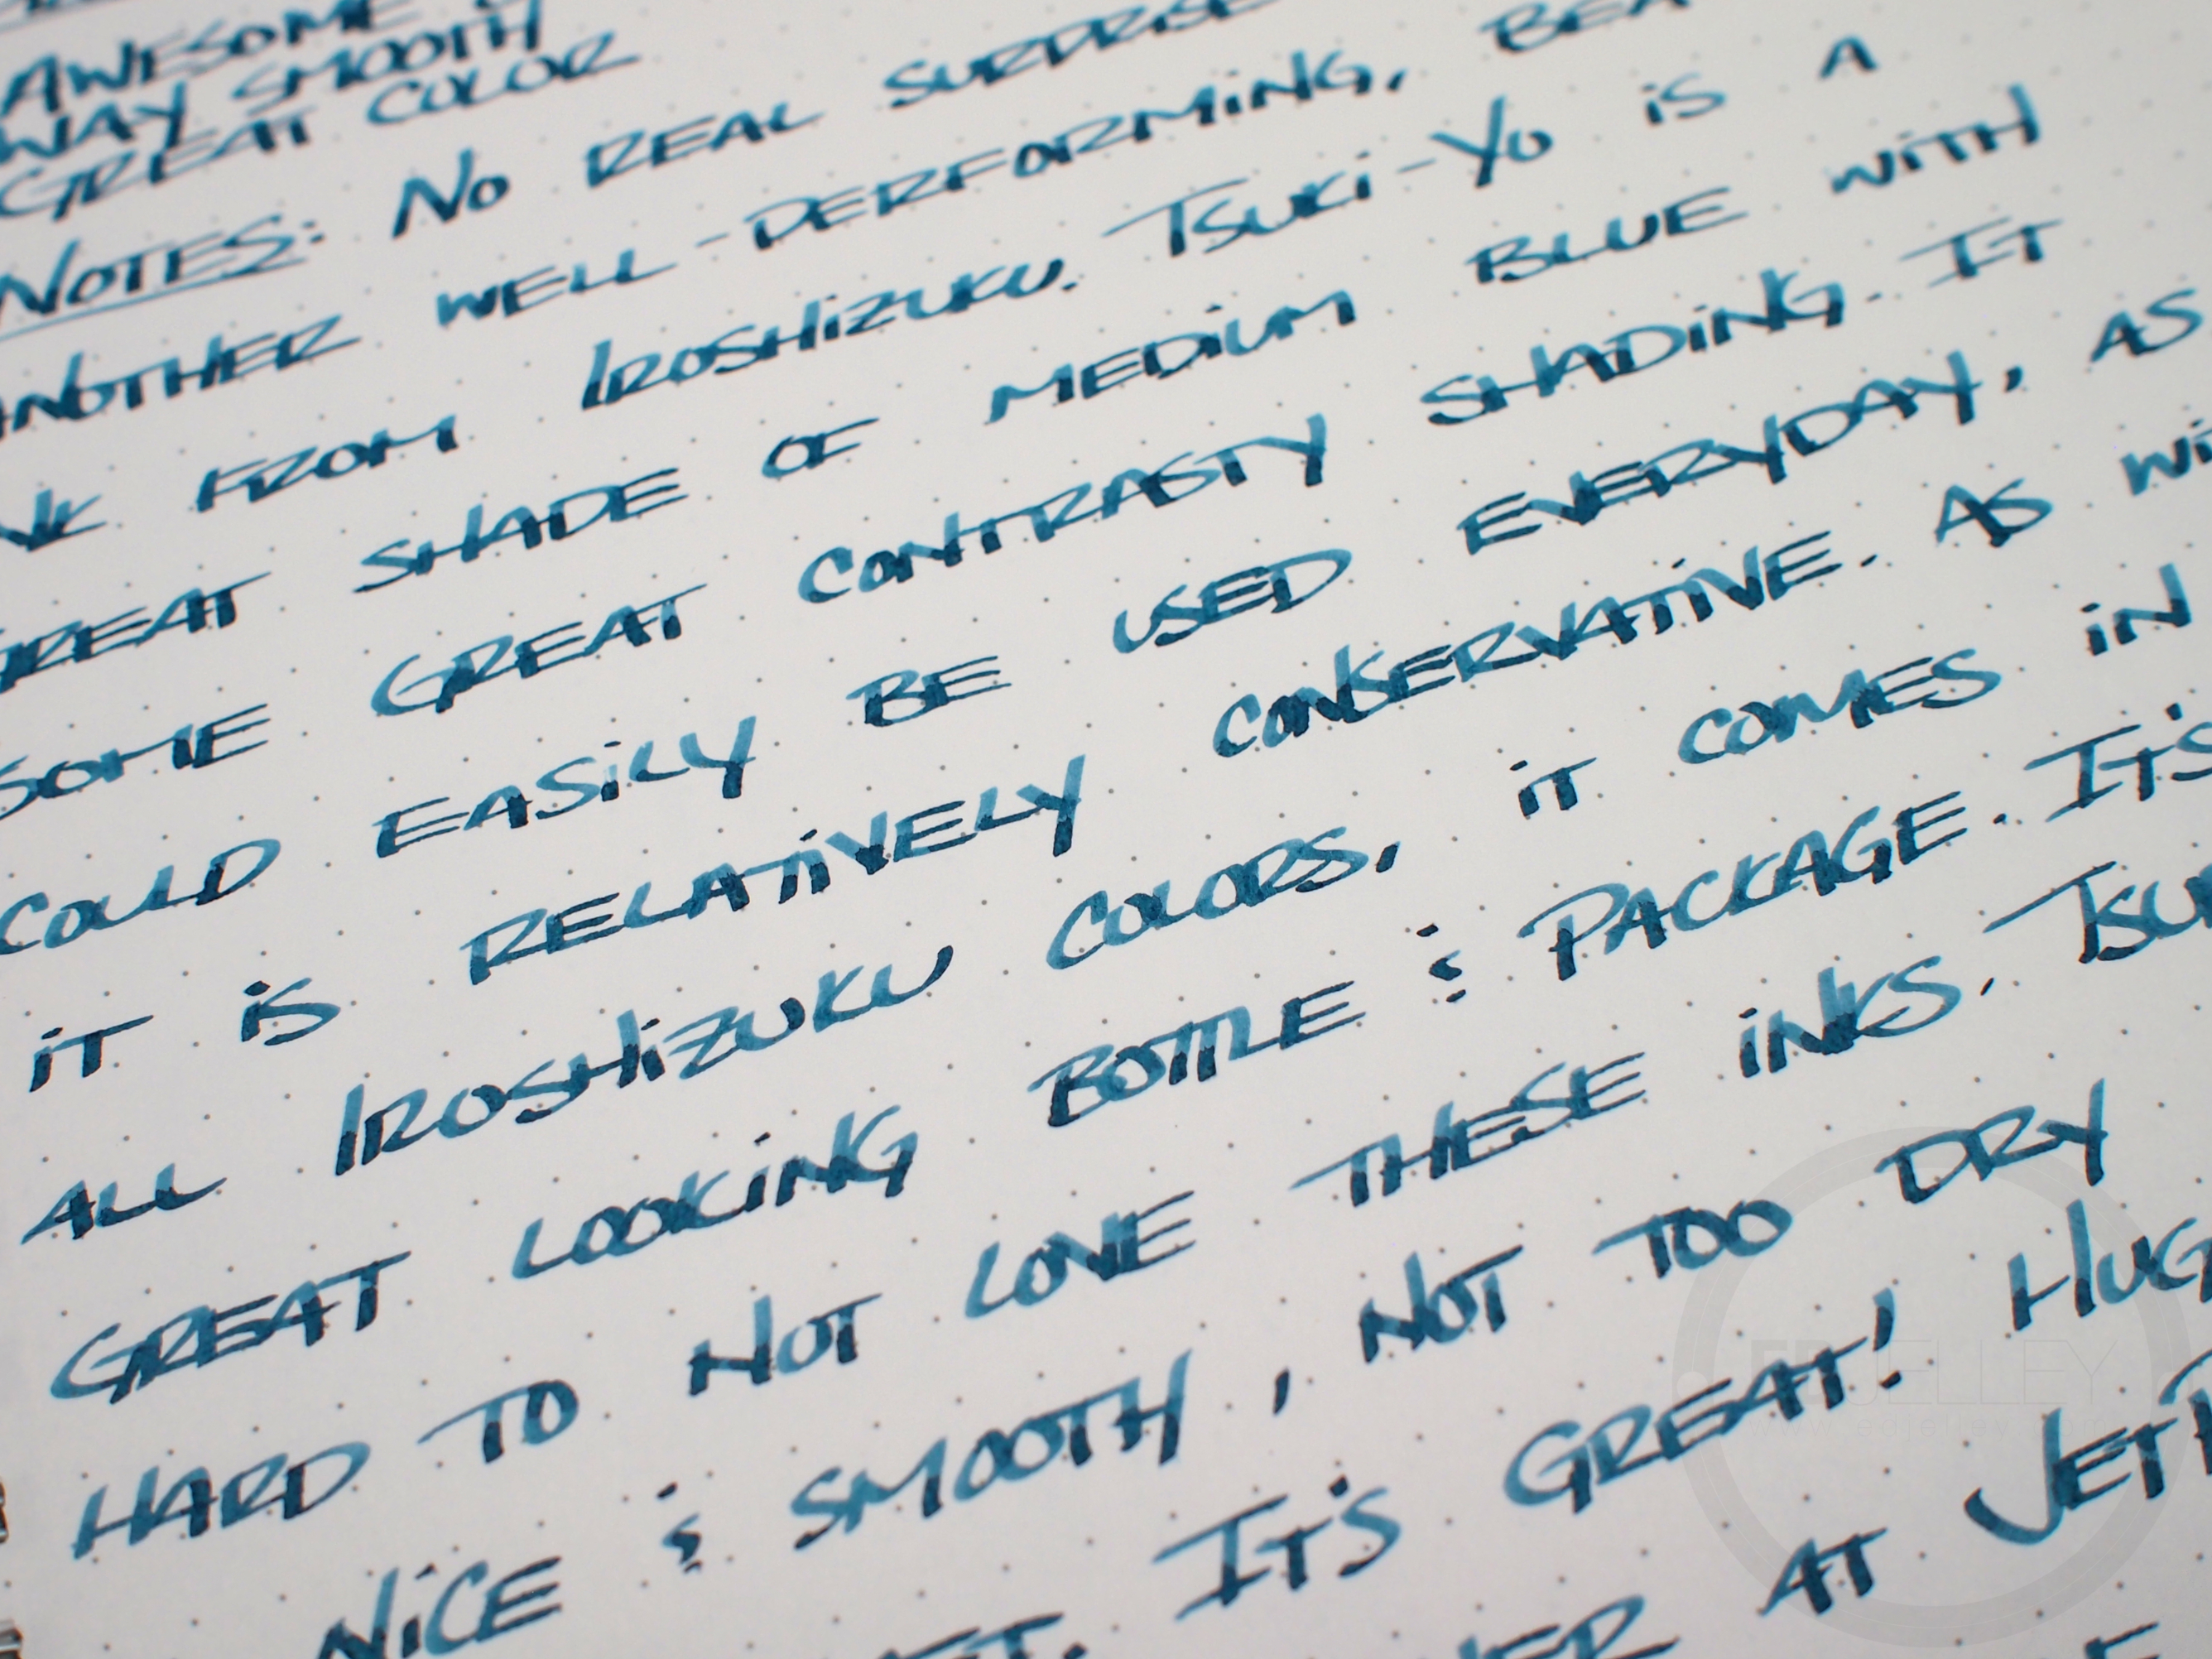 AWESOME
WAY SMOOTH
GREAT COLOR
NOTES: NO REAL SURPRISE
ANOTHER WELL-PERFORMING, BEA
FROM IROSHIZUKU. TSUKI-YO IS A
GREAT SHADE OF MEDIUM BLUE WITH
SOME GREAT CONTRASTY SHADING. IT
COULD EASILY BE USED EVERYDAY, AS
IT IS RELATIVELY CONSERVATIVE. AS WI
ALL IROSHIZUKU COLORS, IT COMES IN
GREAT LOOKING BOTTLE & PACKAGE. IT'S
HARD TO NOT LOVE THESE INKS. TSU
NICE & SMOOTH, NOT TOO DRY
IT'S GREAT! HUG
AT JET
EDJELLEY